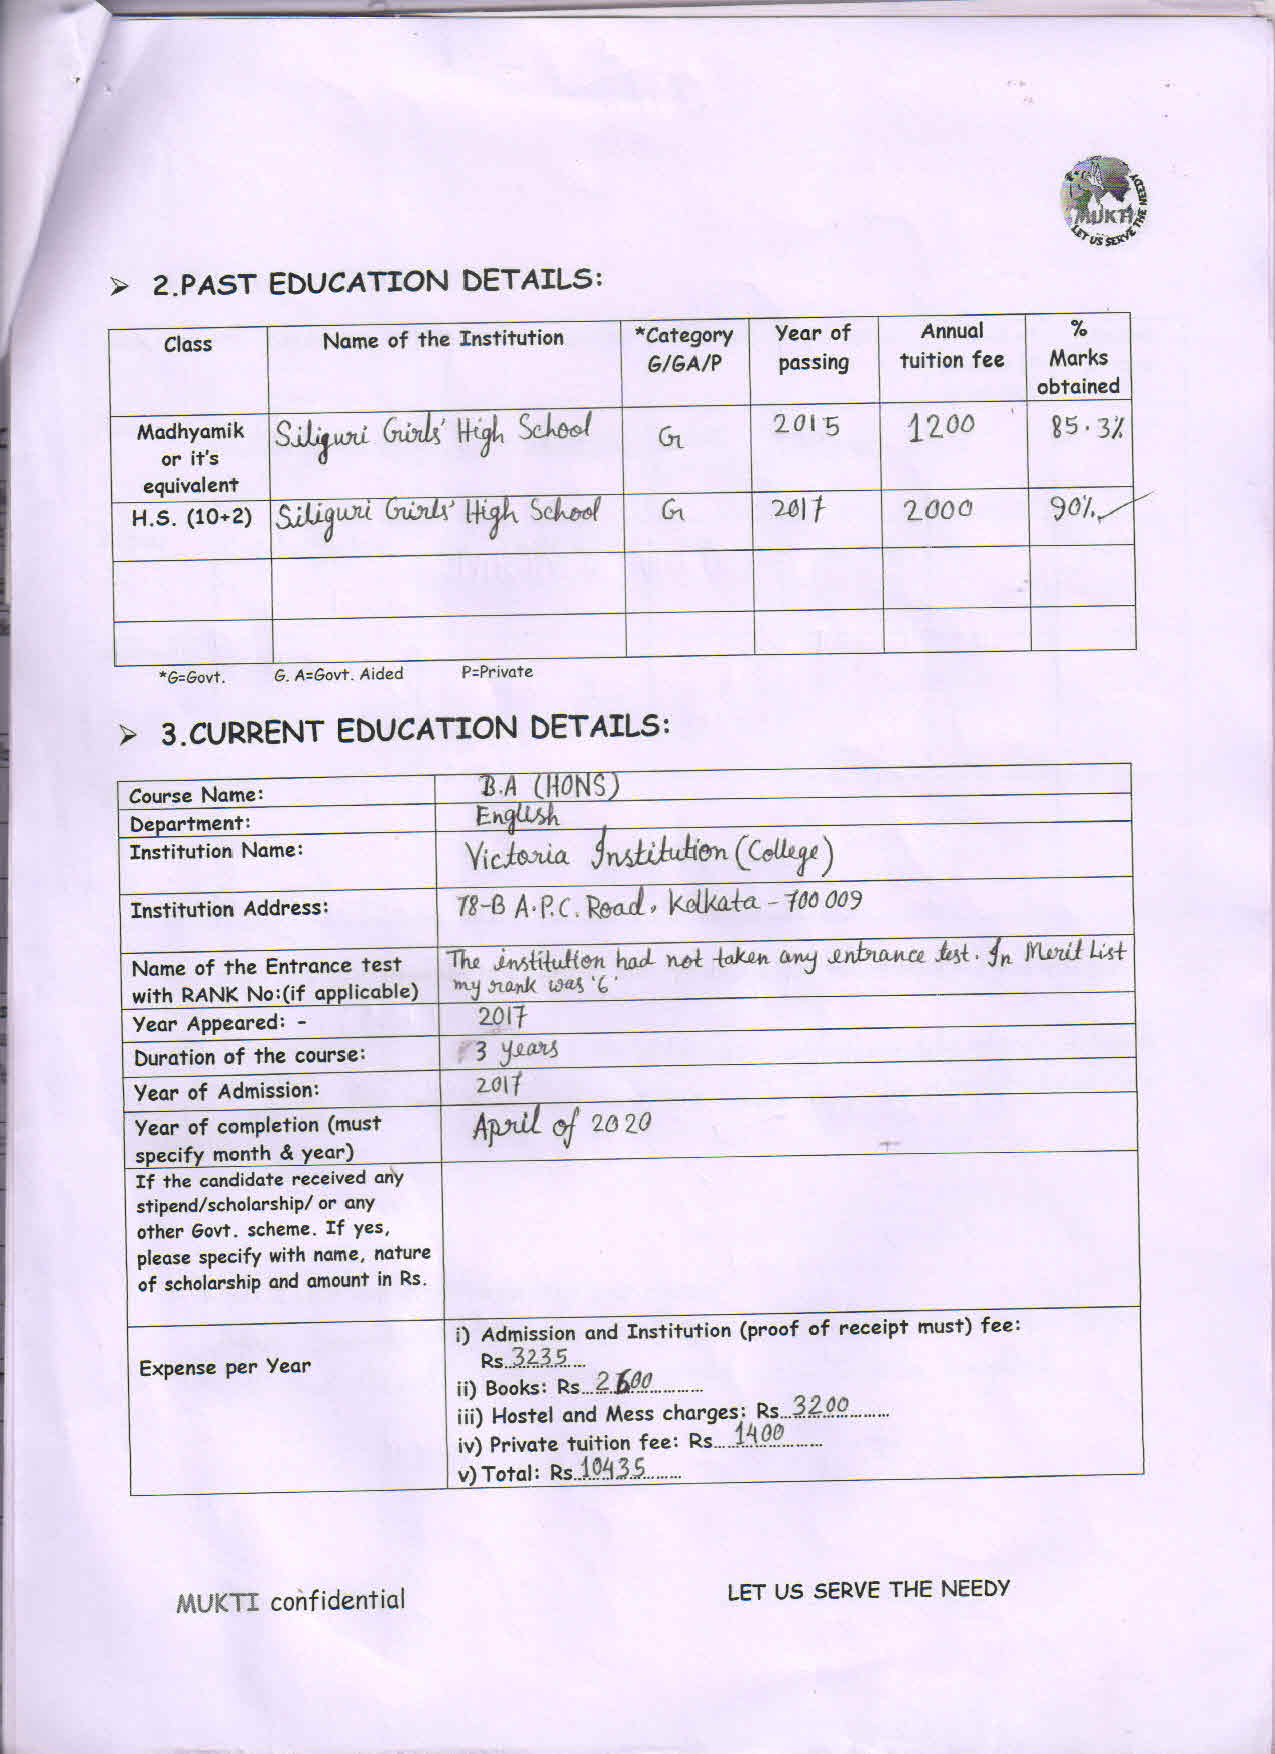 MUKTI
LET US SERVE THE NEEDY
➢ 2.PAST EDUCATION DETAILS:
Class Name of the Institution *Category G/GA/P Year of passing Annual tuition fee % Marks obtained
Madhyamik or it's equivalent Siliguri Girls' High School G 2015 1200 85.3%
H.S. (10+2) Siliguri Girls' High School G 2017 2000 90%
*G=Govt. G. A=Govt. Aided P=Private
➢ 3.CURRENT EDUCATION DETAILS:
Course Name: B.A (HONS)
Department: English
Institution Name: Victoria Institution (College)
Institution Address: 78-B A.P.C. Road, Kolkata - 700 009
Name of the Entrance test
with RANK No:(if applicable)
The institution had not taken any entrance test. In Merit List
my rank was '6'
Year Appeared: - 2017
Duration of the course: 3 years
Year of Admission: 2017
Year of completion (must
specify month & year)
April of 2020
If the candidate received any
stipend/scholarship/ or any
other Govt. scheme. If yes,
please specify with name, nature
of scholarship and amount in Rs.
Expense per Year
i) Admission and Institution (proof of receipt must) fee:
Rs..3235....
ii) Books: Rs...2600............
iii) Hostel and Mess charges: Rs...3200.........
iv) Private tuition fee: Rs.....1400...........
v) Total: Rs..10435.........
MUKTI confidential
LET US SERVE THE NEEDY